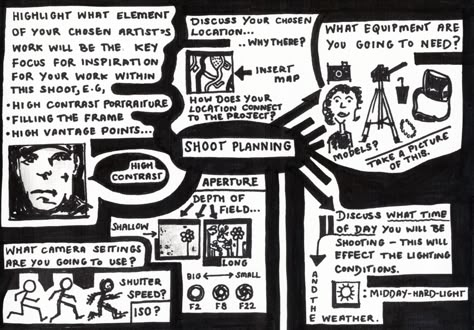 HIGHLIGHT WHAT ELEMENT
OF YOUR CHOSEN ARTIST'S
WORK WILL BE THE KEY
FOCUS FOR INSPIRATION
FOR YOUR WORK WITHIN
THIS SHOOT, E.G,
• HIGH CONTRAST PORTRAITURE
• FILLING THE FRAME
• HIGH VANTAGE POINTS...
HIGH
CONTRAST
DISCUSS YOUR CHOSEN
LOCATION...
..WHY THERE?
INSERT
MAP
HOW DOES YOUR
LOCATION CONNECT
TO THE PROJECT?
SHOOT PLANNING
WHAT EQUIPMENT ARE
YOU GOING TO NEED?
MODELS?
TAKE A PICTURE
OF THIS.
WHAT CAMERA SETTINGS
ARE YOU GOING TO USE?
SHUTTER
SPEED?
ISO?
APERTURE
DEPTH OF
FIELD...
SHALLOW
LONG
BIG SMALL
F2 F8 F22
DISCUSS WHAT TIME
OF DAY YOU WILL BE
SHOOTING - THIS WILL
EFFECT THE LIGHTING
CONDITIONS.
: MIDDAY-HARD-LIGHT
AND THE
WEATHER.